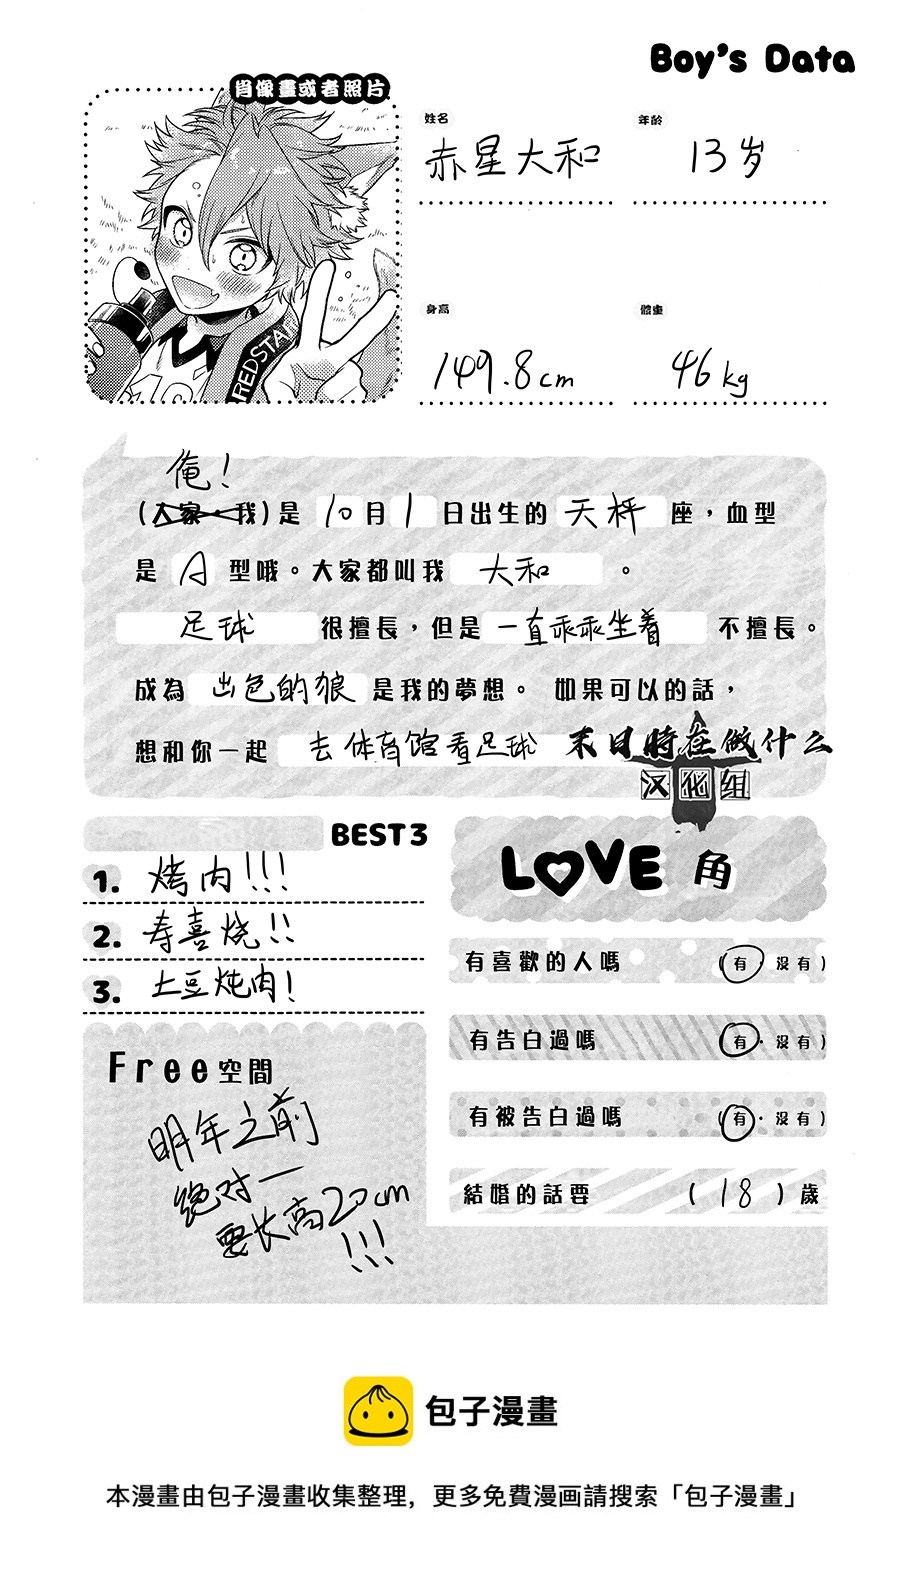 Boy's Data
肖像畫或者照片
姓名
赤星大和
年齡
13岁
身高
149.8cm
體重
46kg
俺!
(大家·我)是 10月1日出生的 天秤 座,血型
是 A 型哦。大家都叫我 大和 。
足球 很擅長,但是 一直乖乖坐着 不擅長。
成為 出色的狼 是我的夢想。 如果可以的話,
想和你一起 去体育馆看足球
末日時在做什么
汉化组
REDSTAR
BEST3
1. 烤肉!!!
2. 寿喜烧!!
3. 土豆炖肉!
Free空間
明年之前
绝对一
要长高20cm
!!!
LOVE 角
有喜歡的人嗎 (有·沒有)
有告白過嗎 (有·沒有)
有被告白過嗎 (有·沒有)
結婚的話要 (18)歲
包子漫畫
本漫畫由包子漫畫收集整理,更多免費漫画請搜索「包子漫畫」